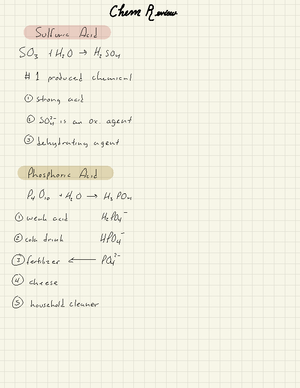 Chem Review
Sulfuric Acid
SO3 + H2O → H2SO4
#1 produced chemical
① strong acid
② SO4²⁻ is an ox. agent
③ dehydrating agent
Phosphoric Acid
P4O10 + H2O → H3PO4
① weak acid H2PO4⁻
② cola drink HPO4⁻
③ fertilizer ← PO4³⁻
④ cheese
⑤ household cleaner